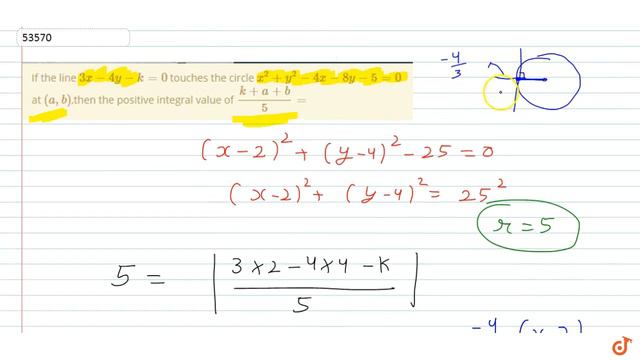 53570
If the line 3x − 4y − k = 0 touches the circle x² + y² − 4x − 8y − 5 = 0
at (a, b), then the positive integral value of (k + a + b)/5 =
-4/3
(x-2)² + (y-4)² - 25 = 0
(x-2)² + (y-4)² = 25²
r = 5
5 = | (3×2 - 4×4 - k)/5 |
-4